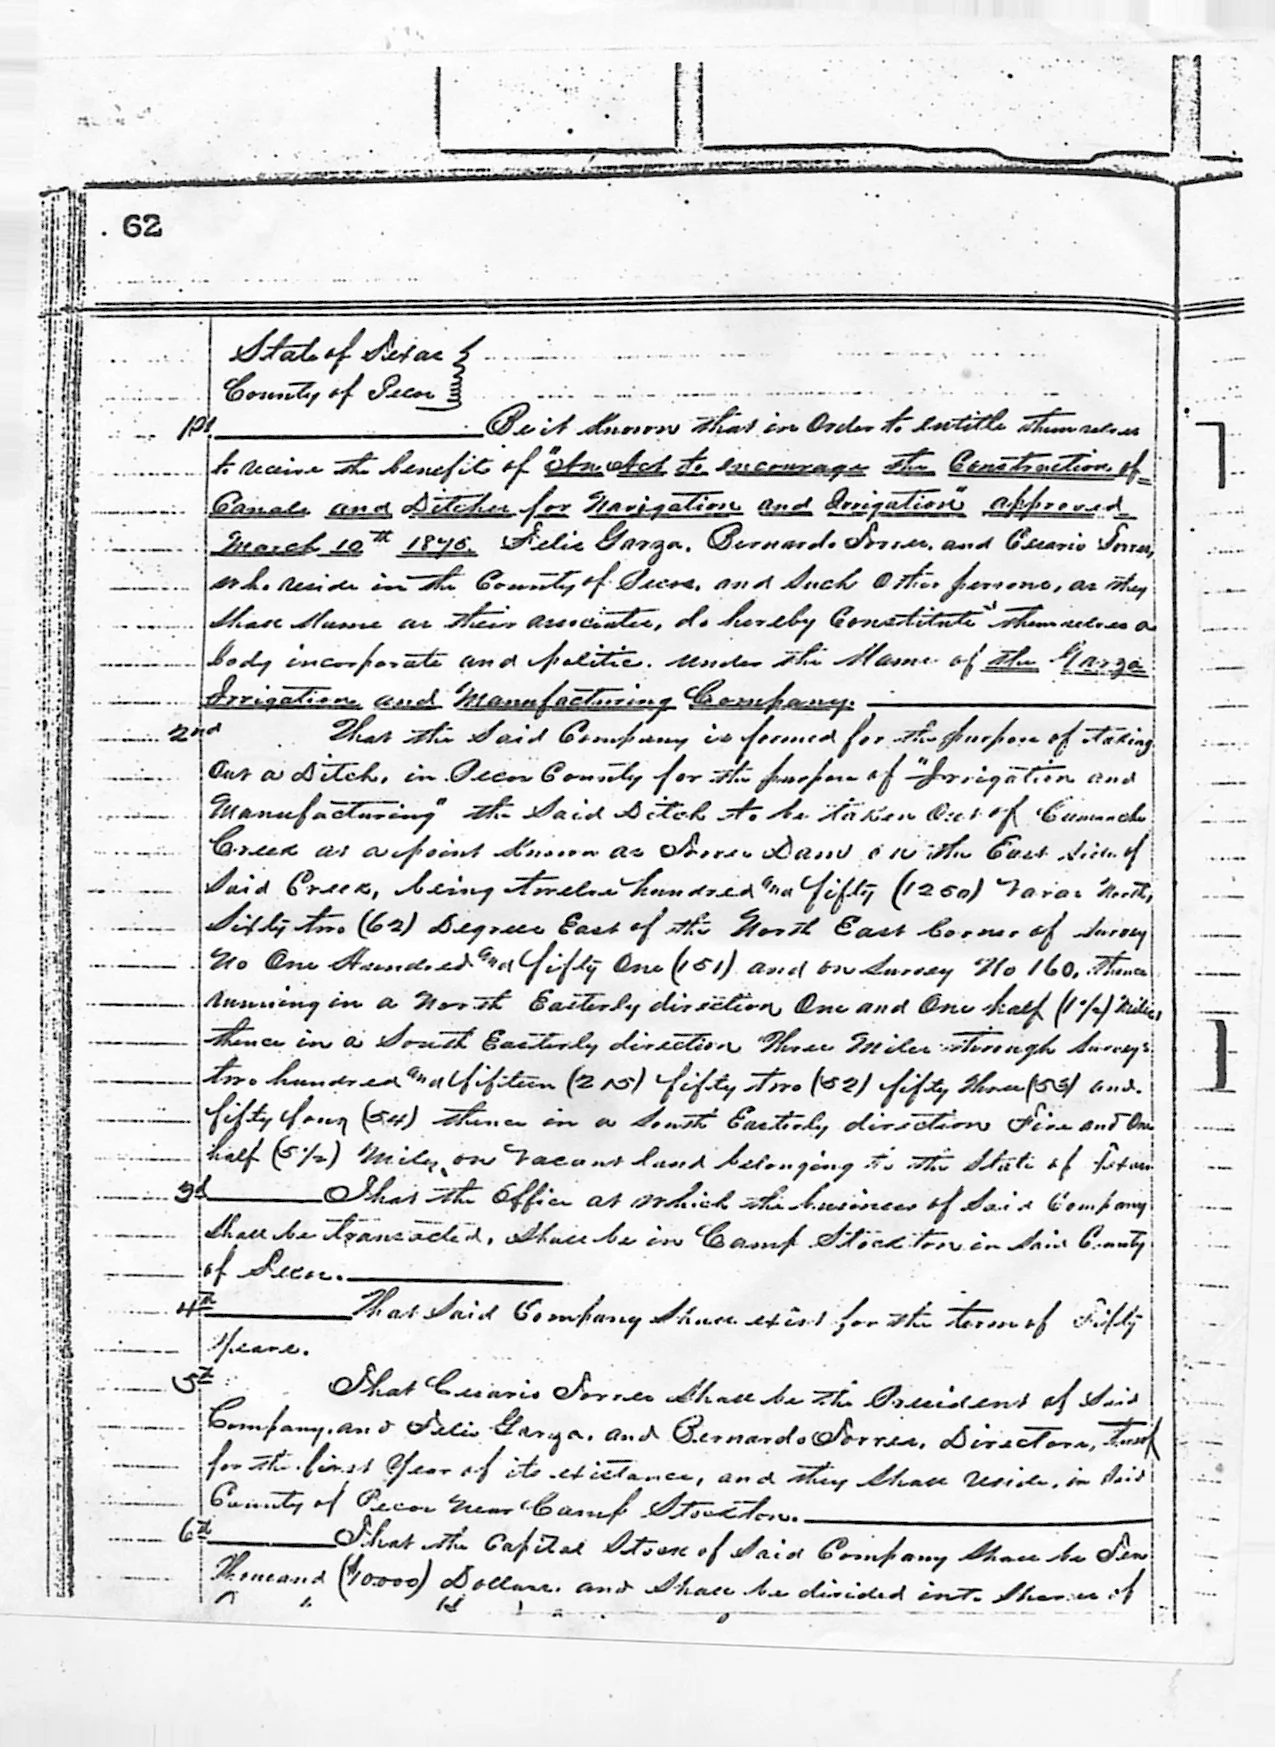 62
State of Texas
County of Pecos
1st Be it Known that in Order to entitle themselves
to receive the benefit of "An Act to encourage the Construction of
Canals and Ditches for Navigation and Irrigation" approved
March 10th 1875. Felis Garza, Bernardo Torres, and Cesario Torres,
who reside in the County of Pecos, and Such Other persons, as they
Shall Name as their associates, do hereby Constitute themselves a
body incorporate and politic. under the Name of the Garza
Irrigation and Manufacturing Company.
2nd That the Said Company is formed for the purpose of taking
Out a Ditch, in Pecos County for the purpose of "Irrigation and
Manufacturing" the Said Ditch to be taken Out of Comanche
Creek at a point Known as Torres Dam on the East side of
Said Creek, being twelve hundred and fifty (1250) Varas North,
Sixty two (62) Degrees East of the North East Corner of Survey
No One Hundred and fifty One (151) and on Survey No 160, thence
running in a North Easterly direction One and One half (1 1/2) Miles
thence in a South Easterly direction Three Miles through Surveys
two hundred and fifteen (215) fifty two (52) fifty three (53) and
fifty four (54) thence in a South Easterly direction Five and One
half (5 1/2) Miles, on Vacant land belonging to the State of Texas
3d That the Office at which the business of Said Company
Shall be transacted, Shall be in Camp Stockton in Said County
of Pecos.
4th That Said Company Shall exist for the term of Fifty
Years.
5th That Cesario Torres Shall be the President of Said
Company, and Felis Garza, and Bernardo Torres, Directors, thereof
for the first Year of its existance, and they Shall reside, in Said
County of Pecos Near Camp Stockton.
6th That the Capital Stock of Said Company Shall be Ten
Thousand ($10.000) Dollars. and Shall be divided into Shares of